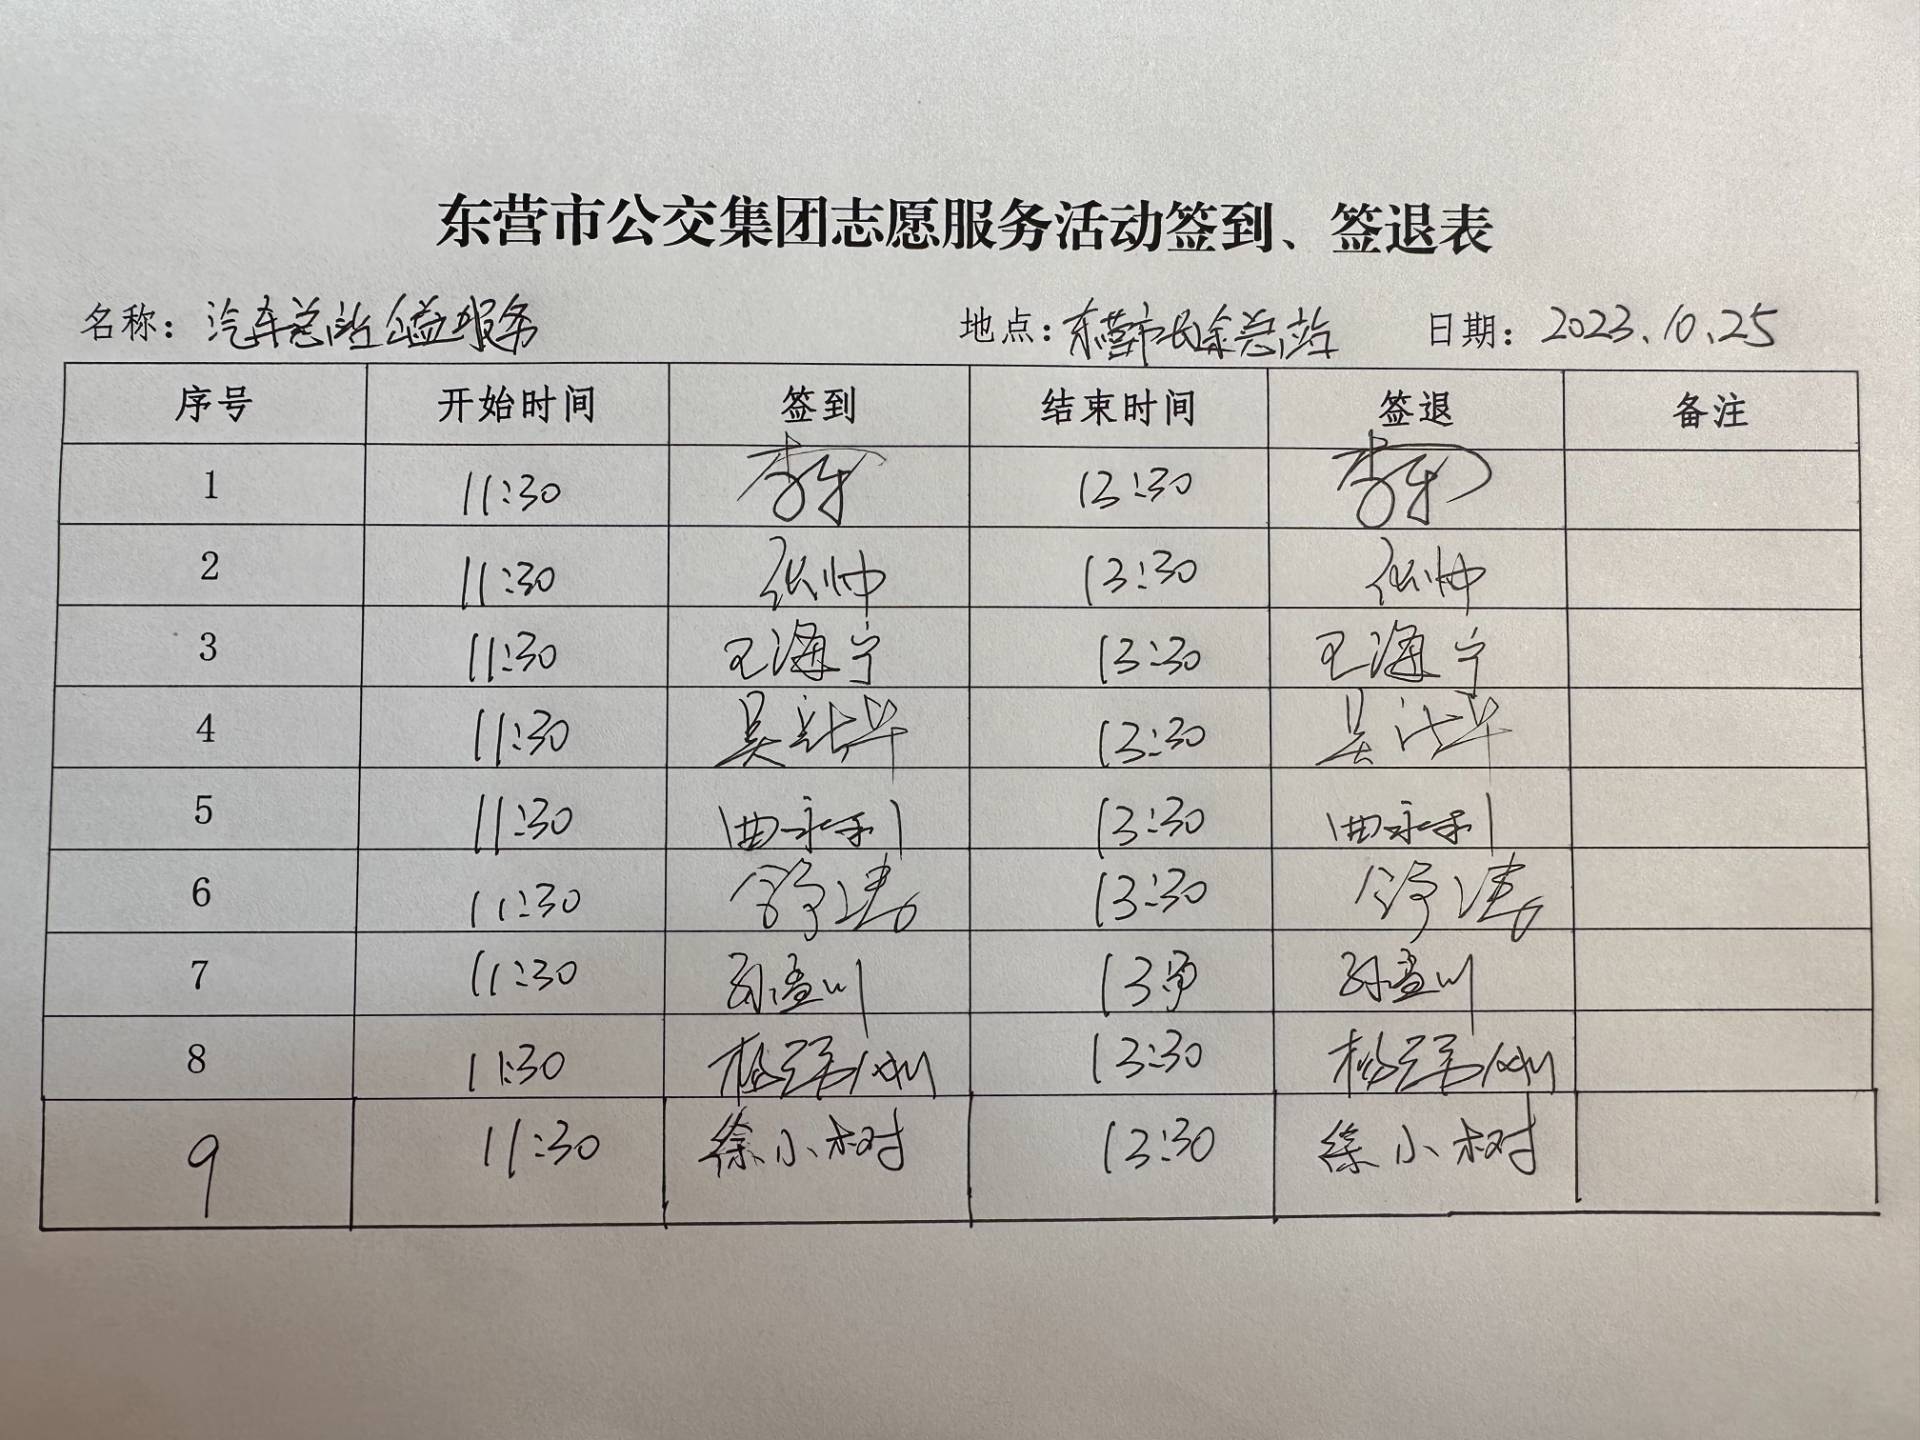 东营市公交集团志愿服务活动签到、签退表
名称：汽车总站公益服务 地点：东营市长途总站 日期：2023.10.25
序号 开始时间 签到 结束时间 签退 备注
1 11:30 李 13:30 李
2 11:30 张帅 13:30 张帅
3 11:30 王海宁 13:30 王海宁
4 11:30 吴 华 13:30 吴 华
5 11:30 曲永利 13:30 曲永利
6 11:30 舒 13:30 舒
7 11:30 孙孟川 13:30 孙孟川
8 11:30 杨 13:30 杨
9 11:30 徐小树 13:30 徐小树